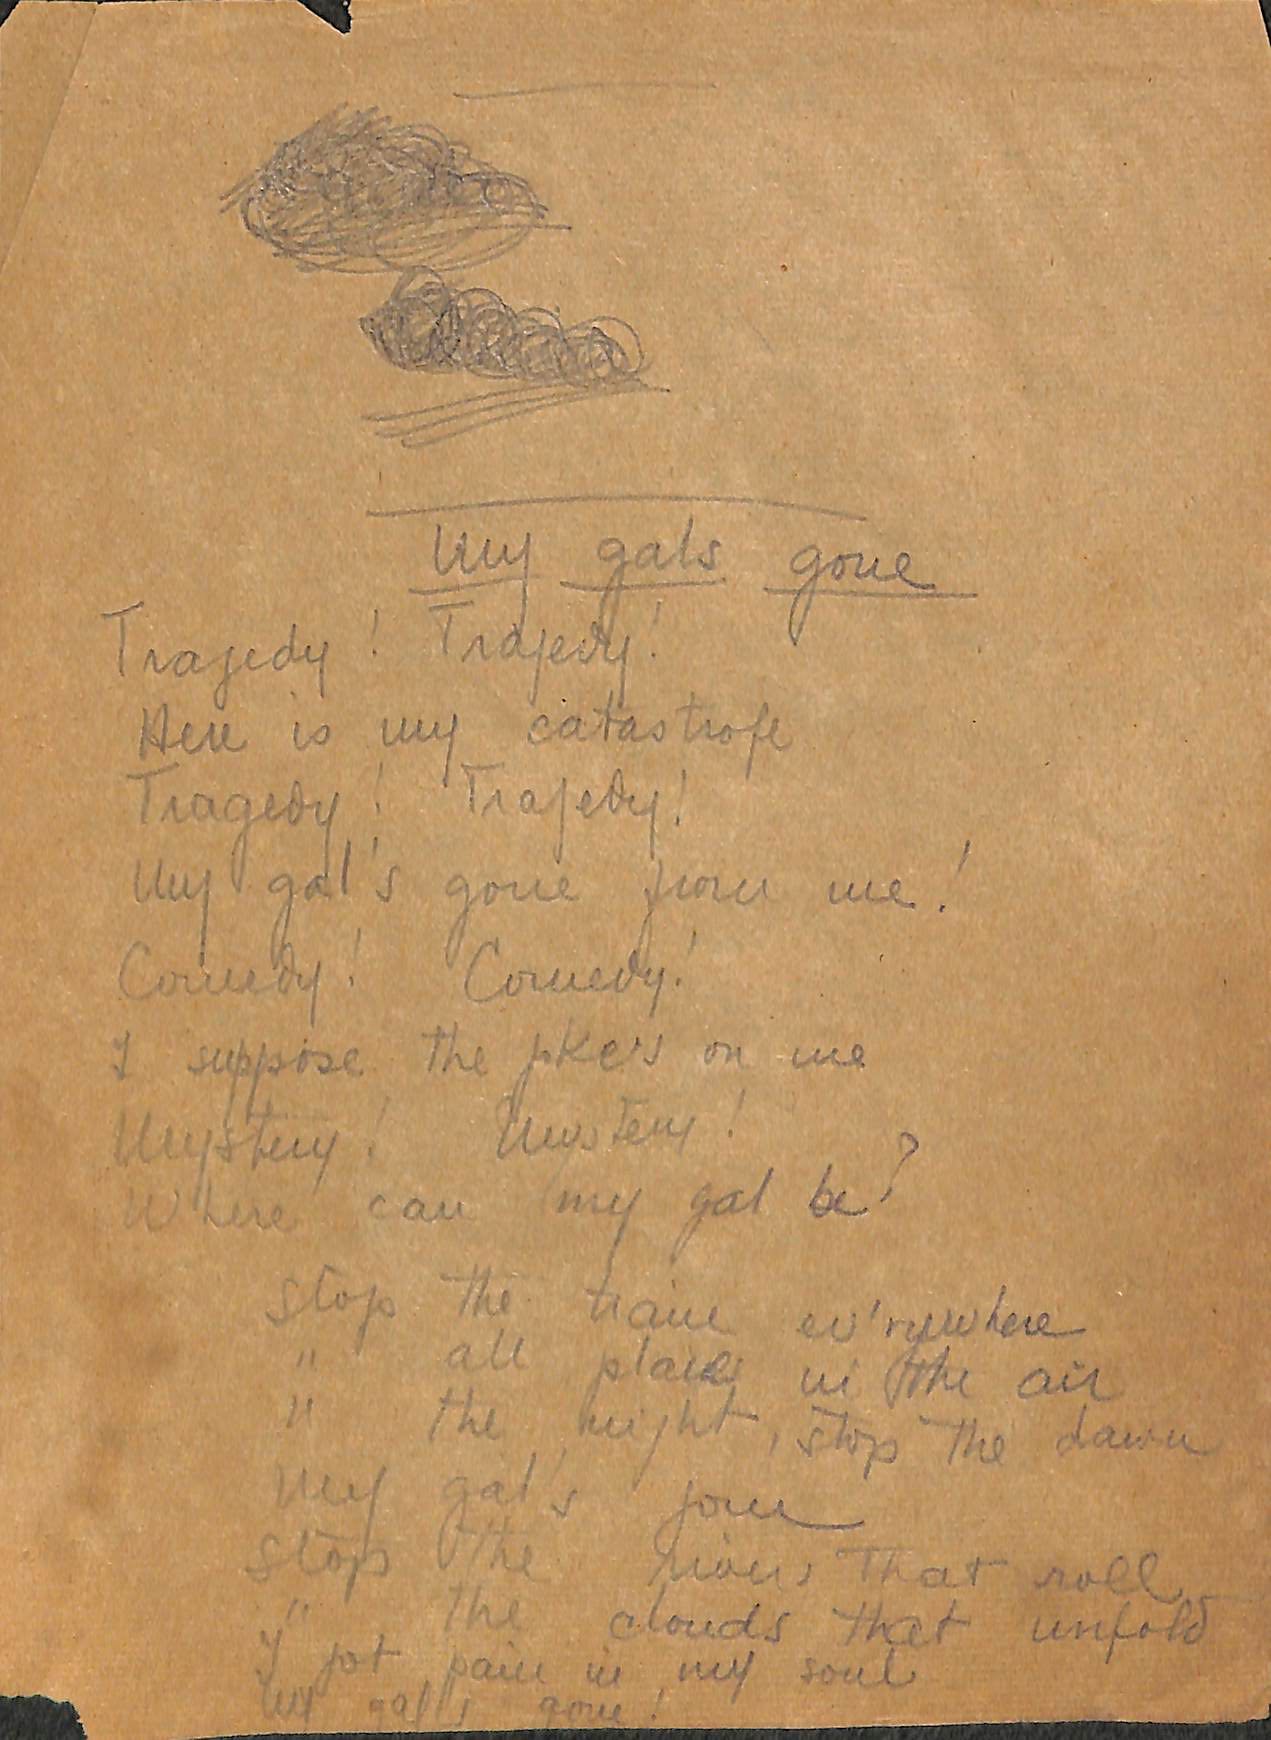 My gals gone
Tragedy! Tragedy!
Here is my catastrofe
Tragedy! Tragedy!
My gal's gone from me!
Comedy! Comedy!
I suppose the joke's on me
Mystery! Mystery!
Where can my gal be?
Stop the train ev'rywhere
" all planes in the air
" the night, stop the dawn
My gal's gone
Stop the rivers that roll
" the clouds that unfold
I got pain in my soul
My gal's gone!